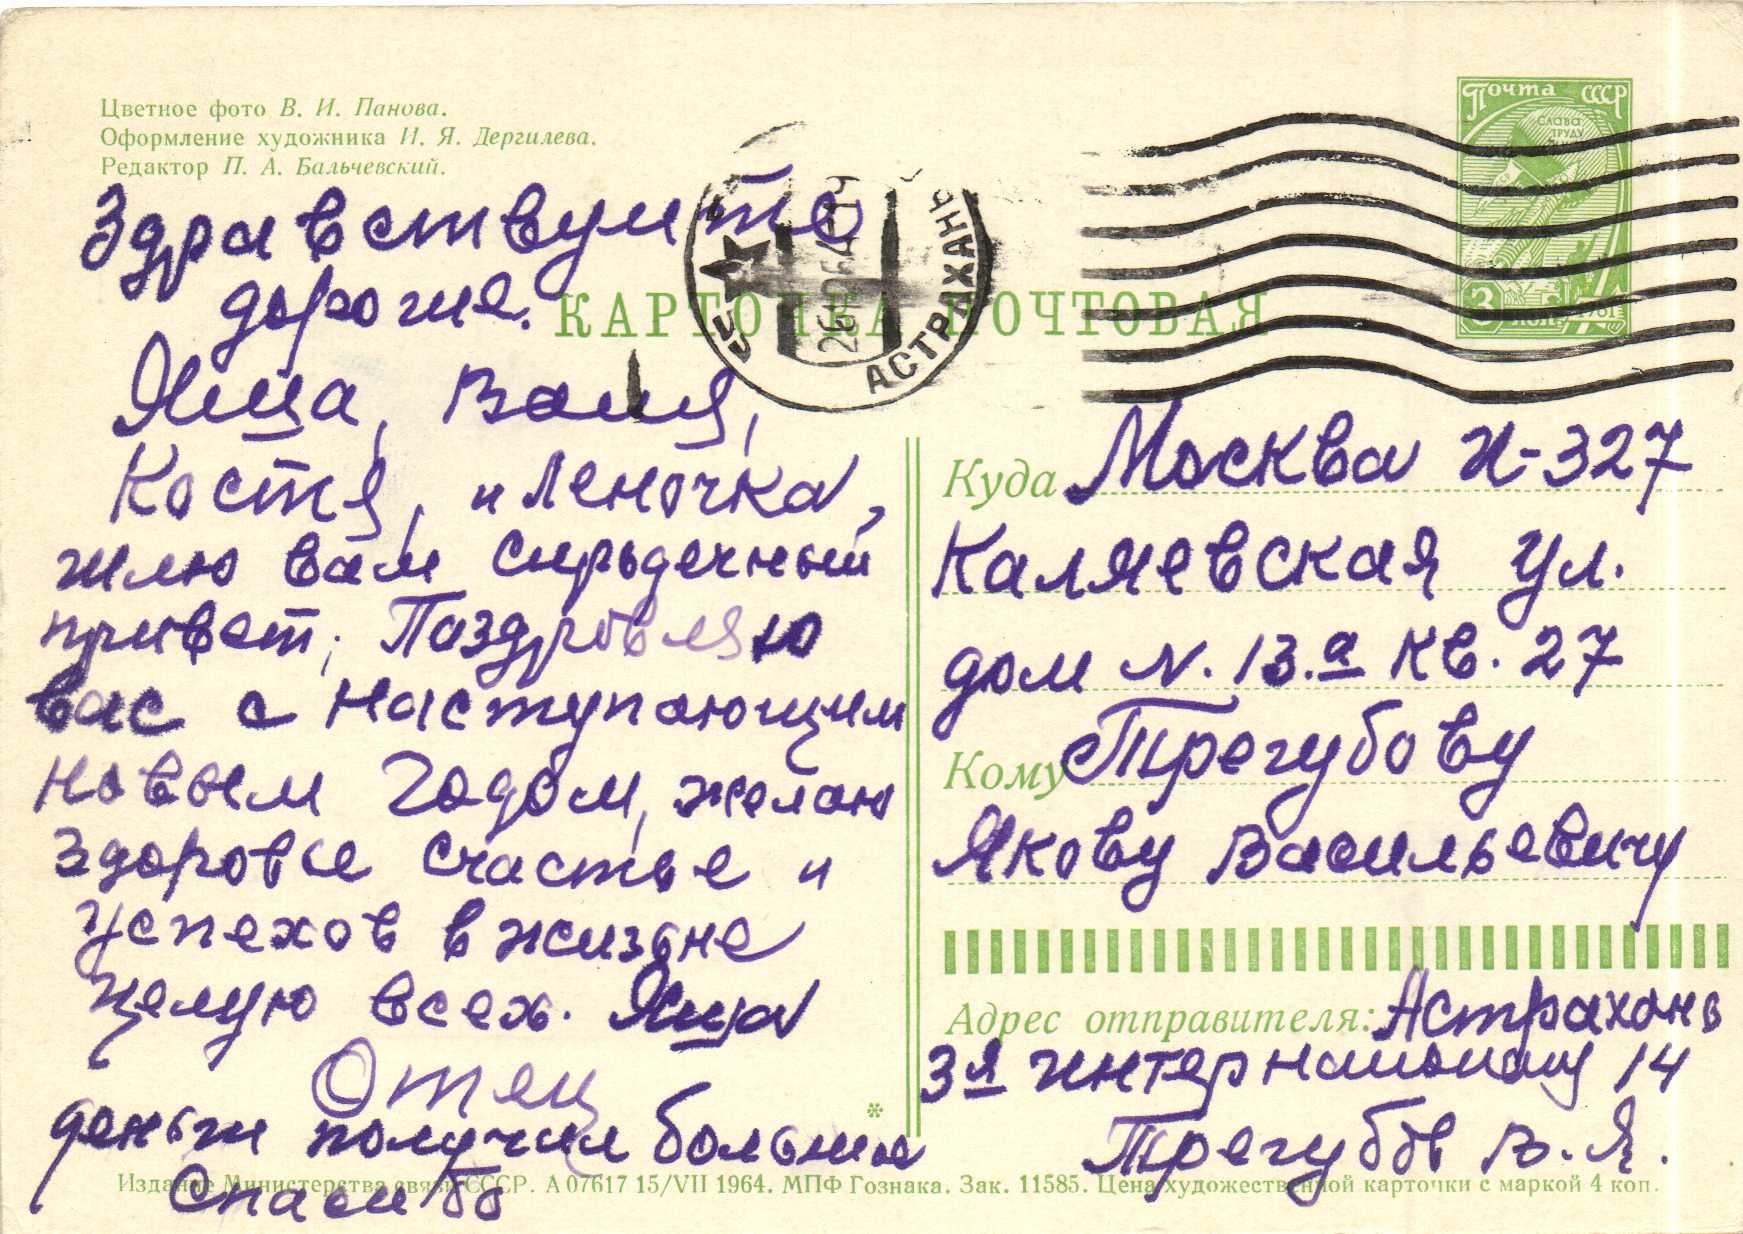 Цветное фото В. И. Панова.
Оформление художника И. Я. Дергилева.
Редактор П. А. Бальчевский.
Почта СССР
СЛАВА
ТРУДУ
3 коп. 1961
АСТРАХАНЬ
26 12 64-14
КАРТОЧКА ПОЧТОВАЯ
Здравствуите
дорогие.
Яша, Ваня,
Костя, и Леночка,
шлю вам сирьдечный
привет; Паздровляю
вас с наступающим
новым Годом, желаю
здоровье счастье и
успехов в жизьне
целую всех. Яша
Отец
деньги получил больше
Спасибо
Куда Москва И-327
Каляевская ул.
дом N. 13.а кв. 27
Кому Трегубову
Якову Васильевичу
Адрес отправителя: Астрахань
3я 14
Трегубов В. Я.
Издание Министерства связи СССР. А 07617 15/VII 1964. МПФ Гознака. Зак. 11585. Цена художественной карточки с маркой 4 коп.